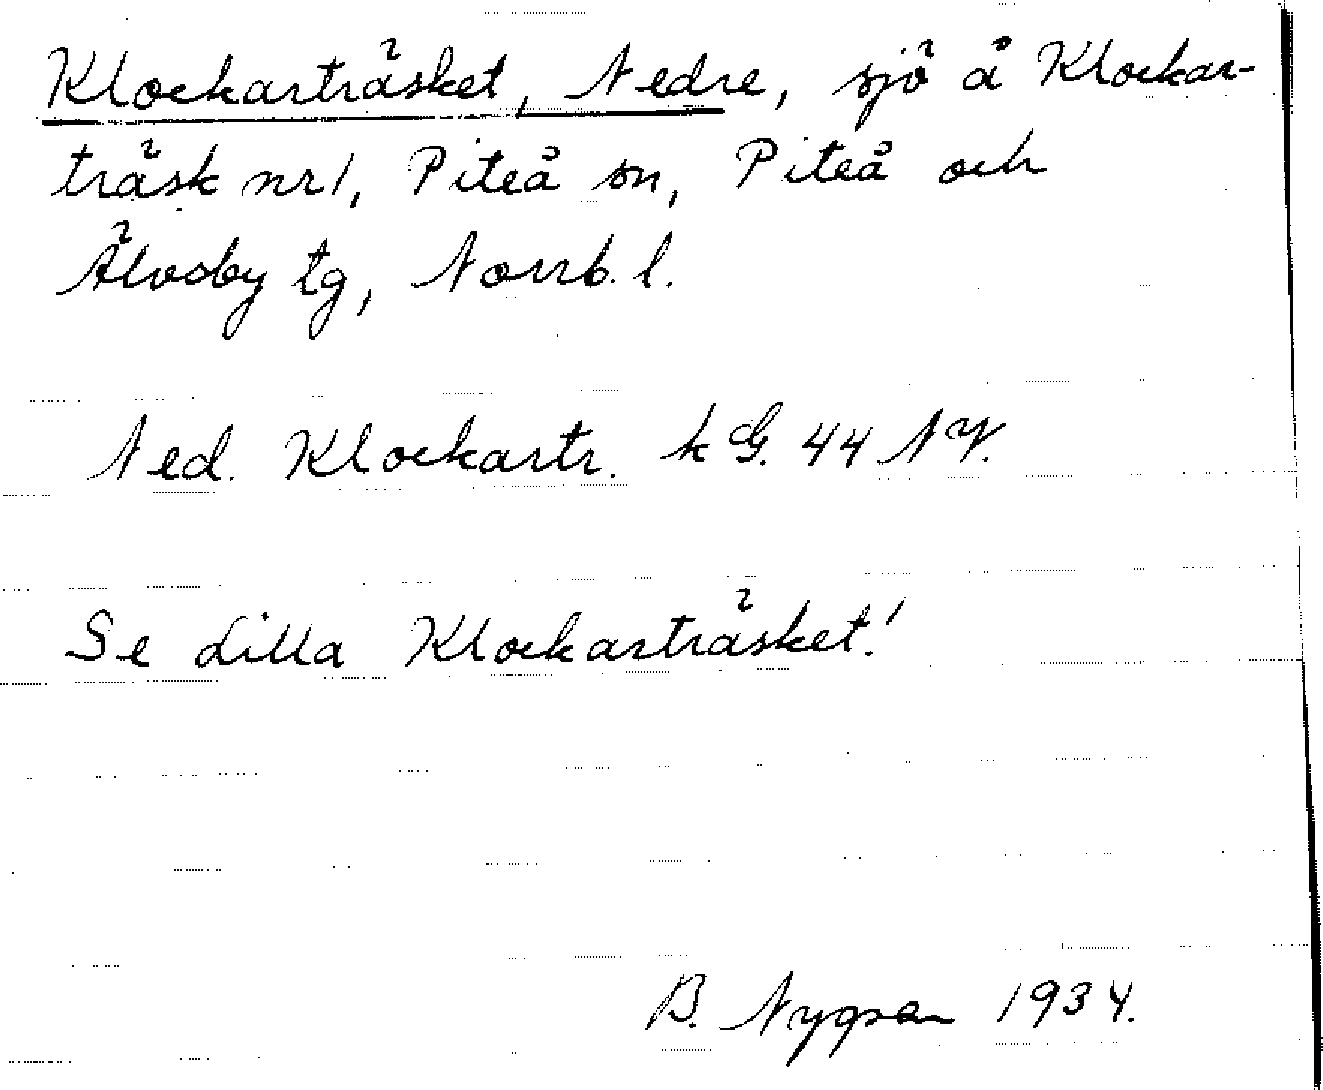 Klockarträsket, Nedre, sjö å Klockar-
träsk nr 1, Piteå sn, Piteå och
Älvsby tg, Norrb. l.
Ned. Klockartr. k G. 44 NV.
Se Lilla Klockarträsket!
B. 1934.